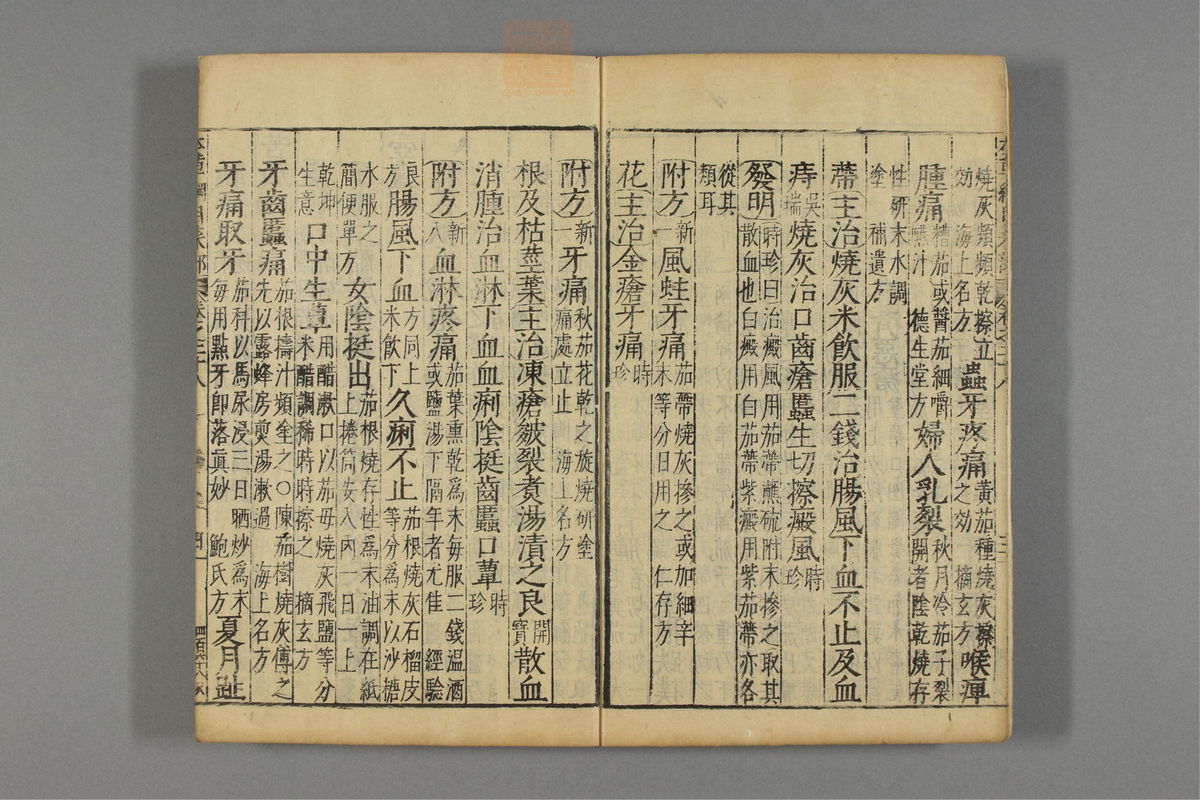 燒灰頻頻乾擦立效 海上名方 蟲牙疼痛 黃茄種燒灰擦之效 摘玄方 喉痺
腫痛 糟茄或醬茄細嚼嚥汁 德生堂方 婦人乳裂 秋月冷茄子裂開者陰乾燒存
性研末水調塗 補遺方
蒂主治燒灰米飲服二錢治腸風下血不止及血
痔 吳瑞 燒灰治口齒瘡䘌生切擦癜風 時珍
發明 時珍曰治癜風用茄蒂蘸硫附末摻之取其散血也白癜用白茄蒂紫癜用紫茄蒂亦各
從其類耳
附方 新一 風蛀牙痛 茄蒂燒灰摻之或加細辛末等分日用之 仁存方
花主治金瘡牙痛 時珍
附方 新一 牙痛 秋茄花乾之旋燒研塗痛處立止 海上名方
根及枯莖葉主治凍瘡皴裂煮湯漬之良 開寶 散血
消腫治血淋下血血痢陰挺齒䘌口蕈 時珍
附方 新八 血淋疼痛 茄葉熏乾爲末每服二錢溫酒或鹽湯下隔年者尤佳 經驗
良方 腸風下血 方同上米飲下 久痢不止 茄根燒灰石榴皮等分爲末以沙糖
水服之 簡便單方 女陰挺出 茄根燒存性爲末油調在紙上捲筒安入內一日一上
乾坤生意 口中生蕈 用醋漱口以茄母燒灰飛鹽等分米醋調稀時時擦之 摘玄方
牙齒䘌痛 茄根擣汁頻塗之○陳茄樹燒灰傅之先以露蜂房煎湯漱過 海上名方
牙痛取牙 茄科以馬尿浸三日晒炒爲末每用點牙即落眞妙 鮑氏方 夏月趾